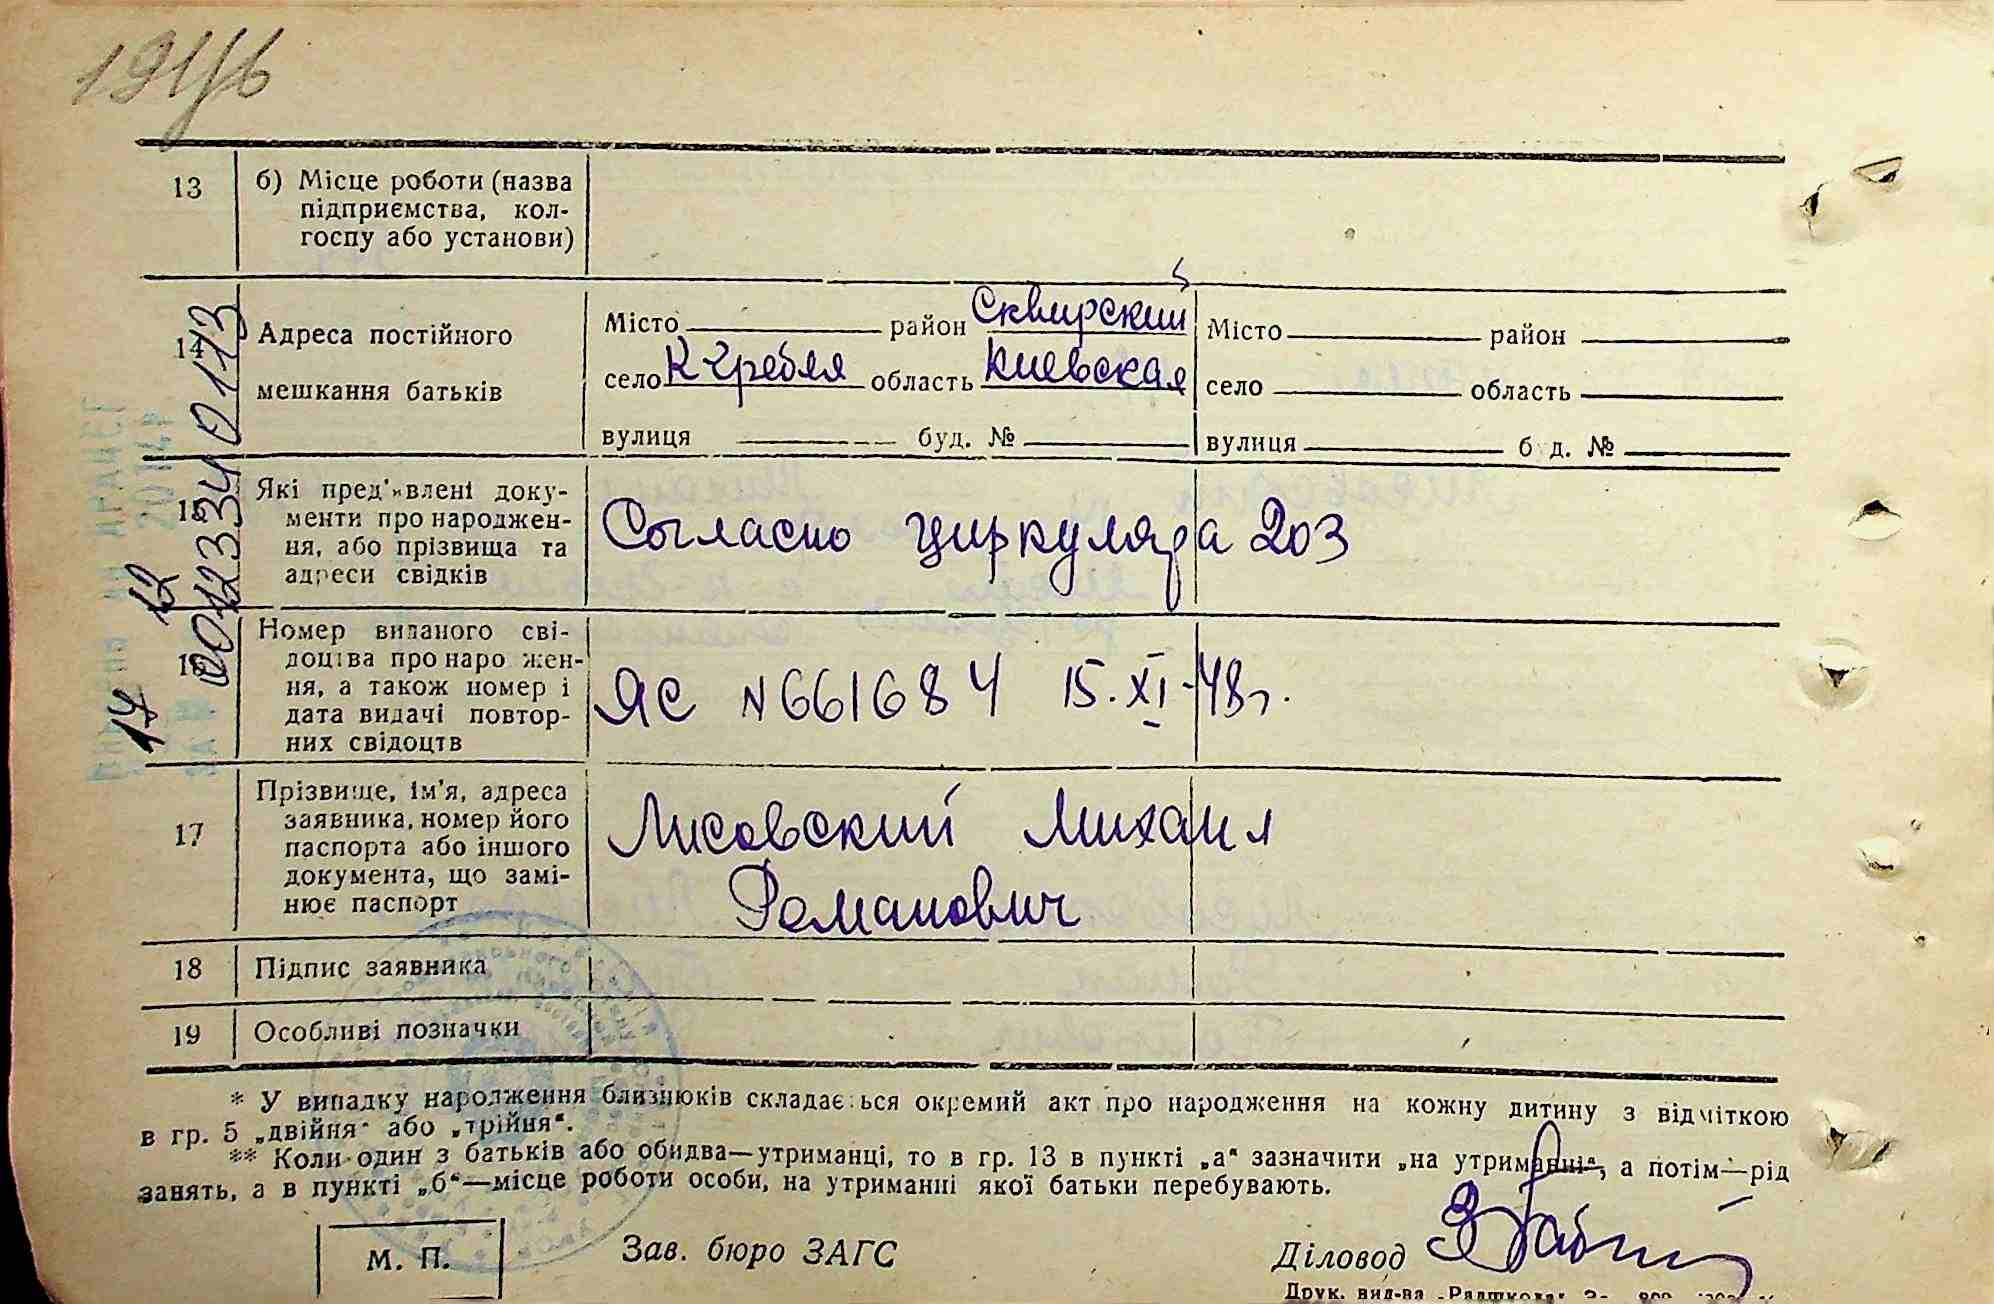 13 б) Місце роботи (назва
підприємства, кол-
госпу або установи)
14 Адреса постійного
мешкання батьків
Місто район Сквирский
село К Гребля область Киевская
вулиця буд. №
Місто район
село область
вулиця б д. №
15 Які пред'явлені доку-
менти про народжен-
ня, або прізвища та
адреси свідків
Согласно циркуляра 203
16 Номер виданого сві-
доцтва про народжен-
ня, а також номер і
дата видачі повтор-
них свідоцтв
ЯС N 661684 15.XI-48г.
17 Прізвище, ім'я, адреса
заявника, номер його
паспорта або іншого
документа, що замі-
нює паспорт
Лисовский Михаил
Романович
18 Підпис заявника
19 Особливі позначки
00123340113
14 12
* У випадку народження близнюків складається окремий акт про народження на кожну дитину з відміткою
в гр. 5 „двійня“ або „трійня“.
** Коли один з батьків або обидва—утриманці, то в гр. 13 в пункті „а“ зазначити „на утриманні“, а потім—рід
занять, а в пункті „б“—місце роботи особи, на утриманні якої батьки перебувають.
М. П.
Зав. бюро ЗАГС
Діловод
Друк. вид-ва „Радшкола“